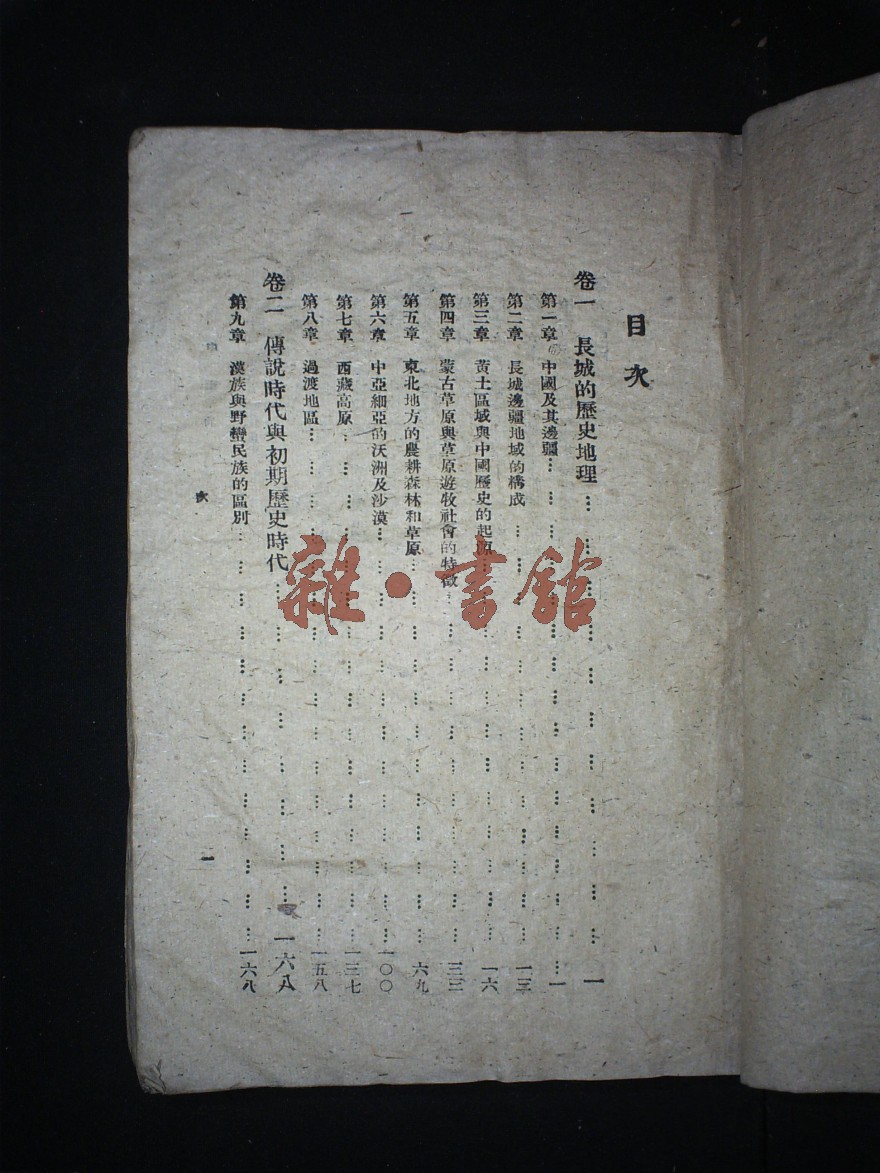 目次
卷一 長城的歷史地理 一
第一章 中國及其邊疆 一
第二章 長城邊疆地域的構成 一三
第三章 黃土區域與中國歷史的起源 一六
第四章 蒙古草原與草原遊牧社會的特徵 三三
第五章 東北地方的農耕森林和草原 六九
第六章 中亞細亞的沃洲及沙漠 一〇〇
第七章 西藏高原 一三七
第八章 過渡地區 一五八
卷二 傳說時代與初期歷史時代 一六八
第九章 漢族與野蠻民族的區別 一六八
次
一
雜·書館